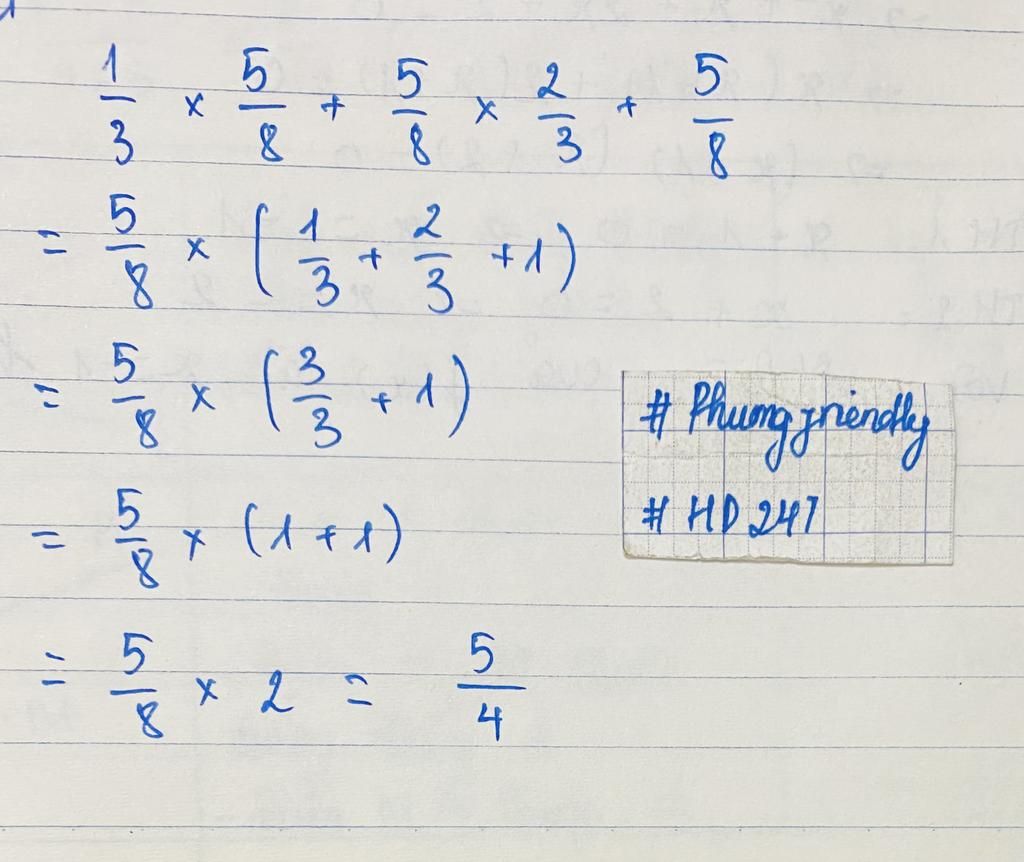 1/3 × 5/8 + 5/8 × 2/3 + 5/8
= 5/8 × (1/3 + 2/3 + 1)
= 5/8 × (3/3 + 1)
= 5/8 × (1 + 1)
= 5/8 × 2 = 5/4
# Phungfriendly
# HD 247